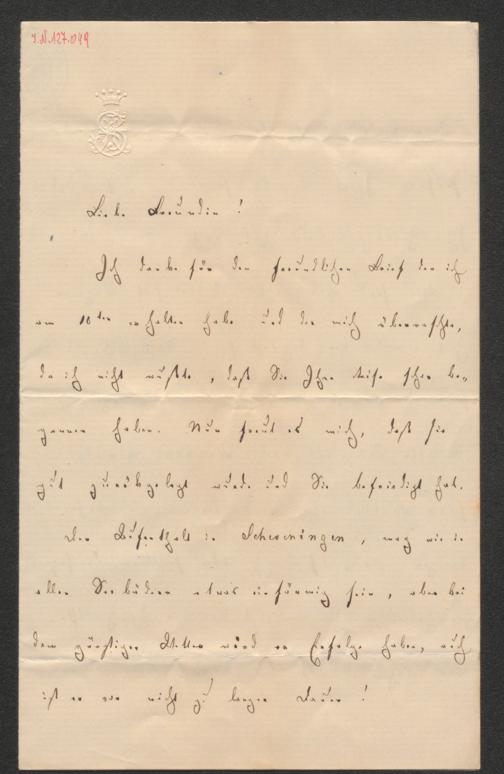 I.N. 127.049
Liebe Freundin!
Ich danke für den freundlichen Brief den ich
am 10ten erhalten habe und der mich überraschte,
da ich nicht wußte, daß Sie Ihre Reise schon be-
gonnen haben. Nun freut es mich, daß sie
gut zurückgelegt wurde und Sie befriedigt hat.
Der Aufenthalt in Scheveningen, mag wie in
allen Seebädern etwas einförmig sein, aber bei
dem günstigen Wetter wird er Erfolge haben, auch
ist er ja nicht zu langer Dauer!